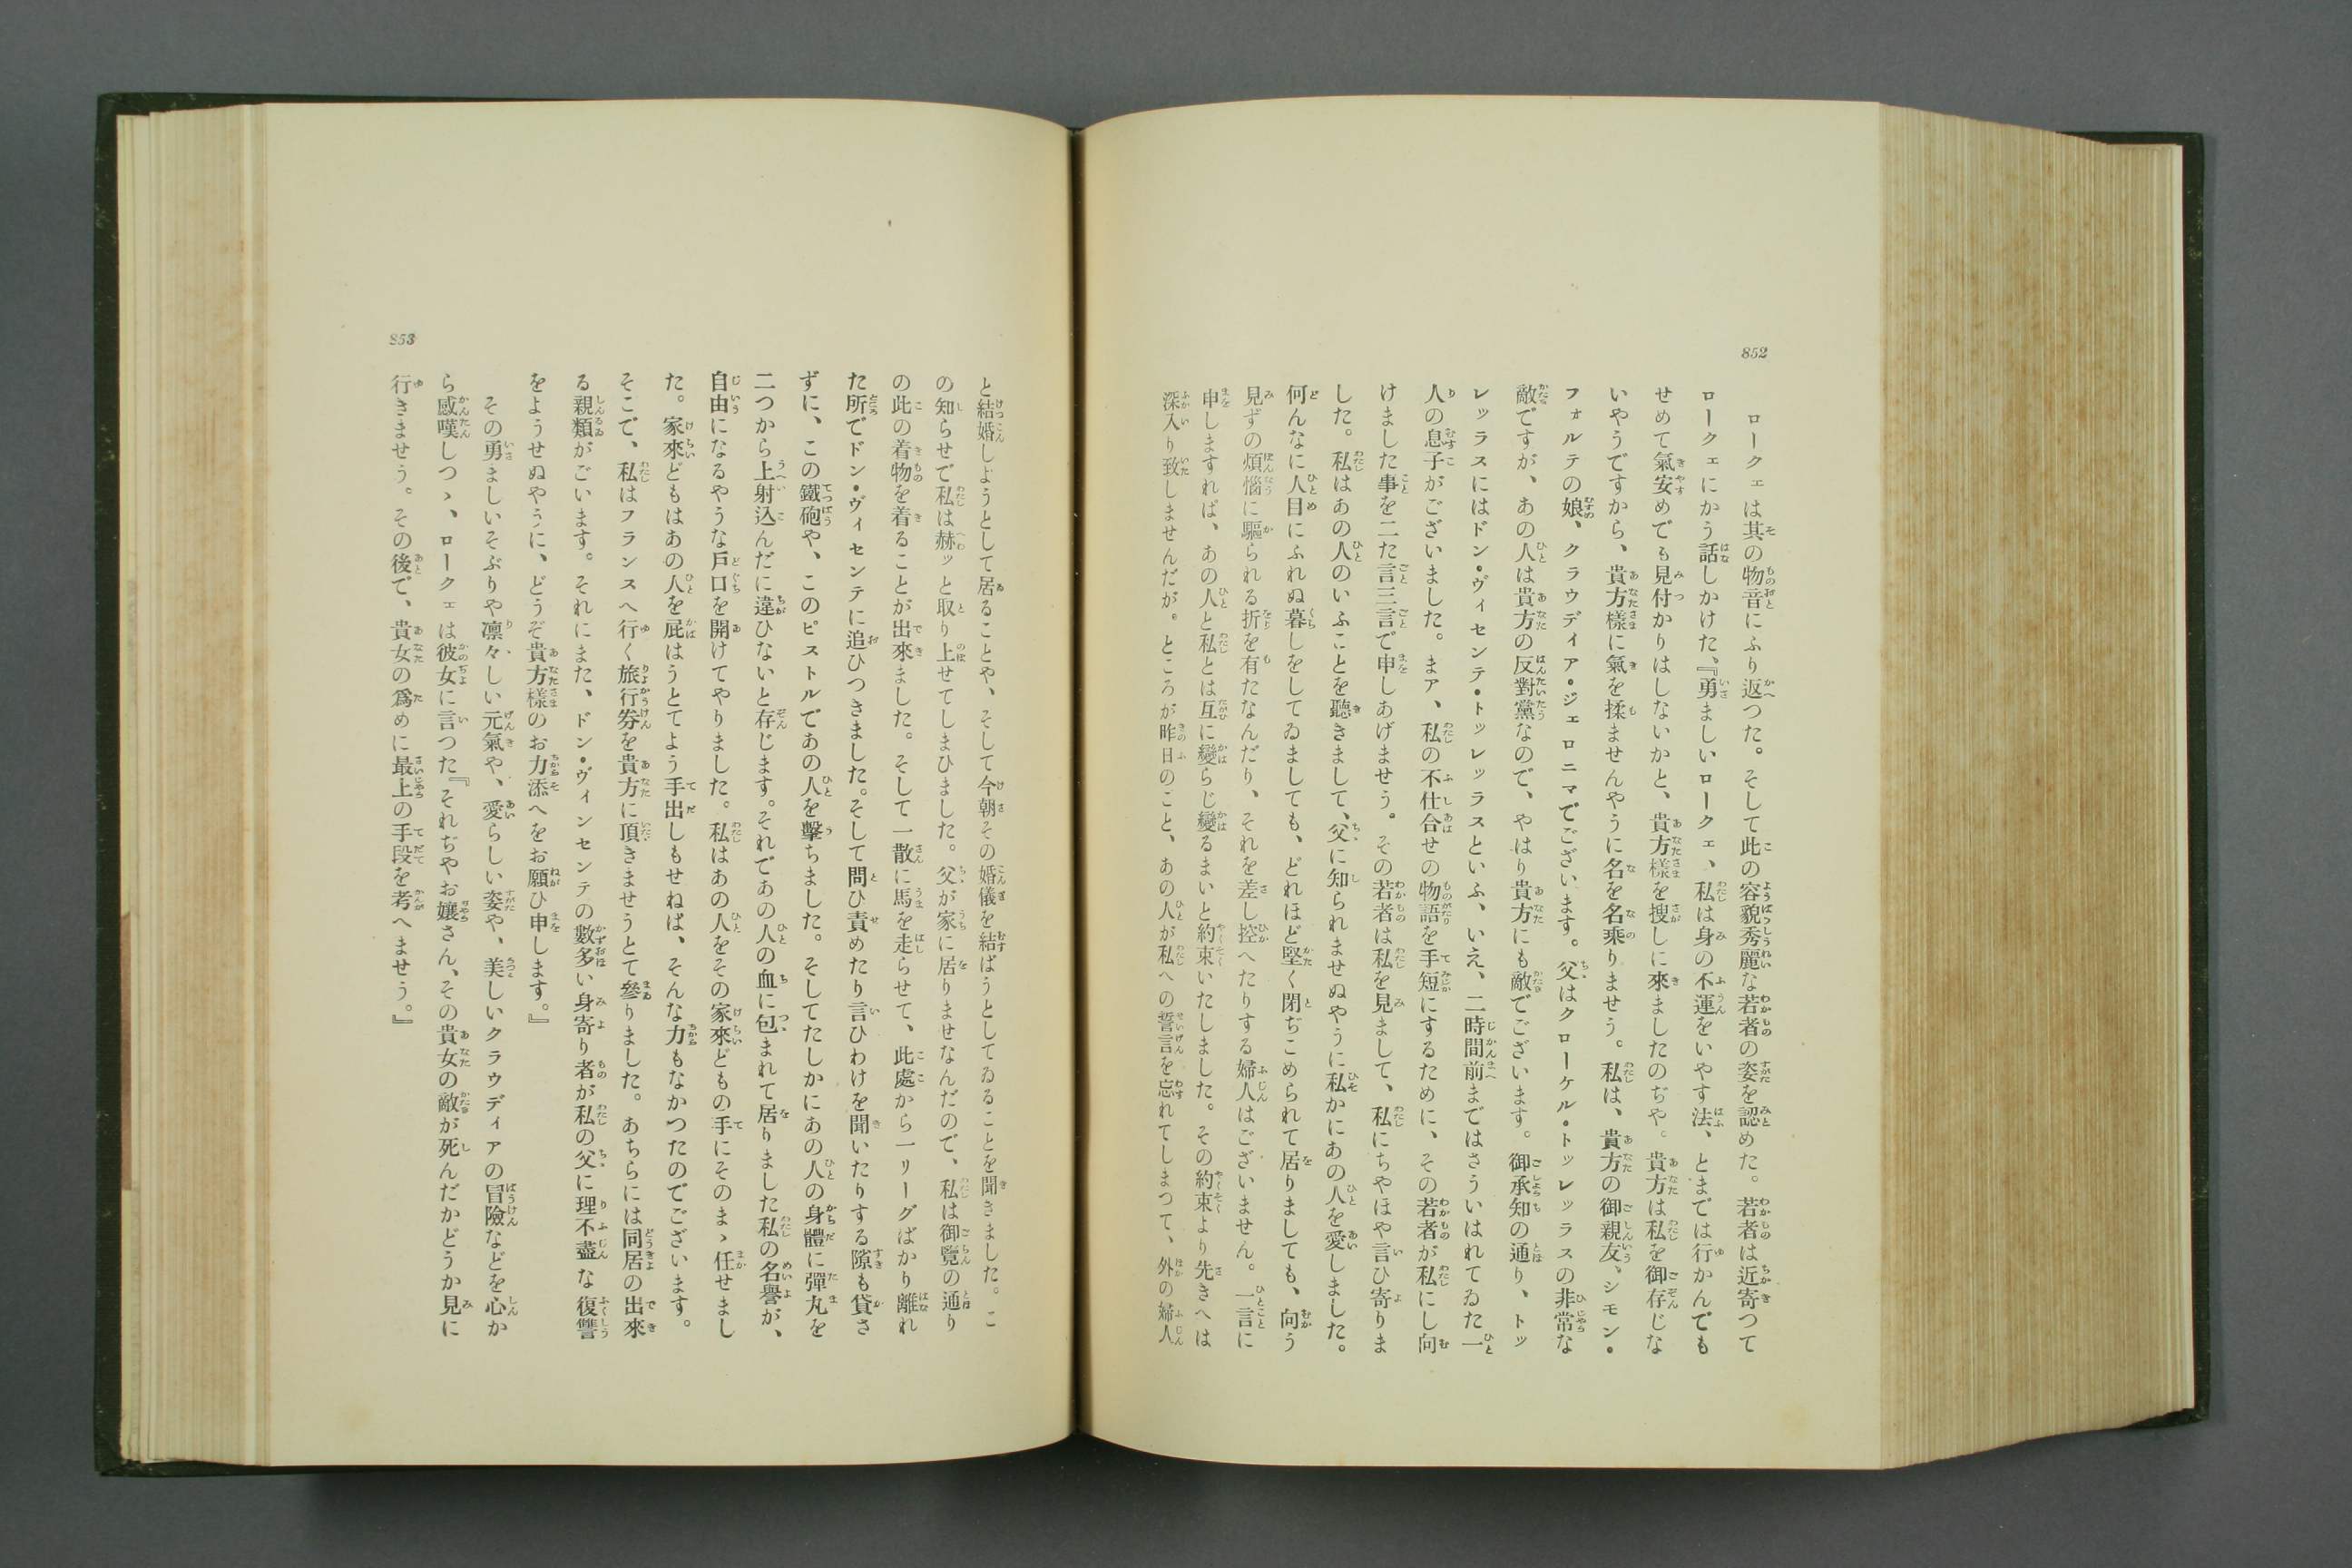 852
ロークェは其の物音にふり返つた。そして此の容貌秀麗な若者の姿を認めた。若者は近寄つて
ロークェにかう話しかけた、『勇ましいロークェ、私は身の不運をいやす法、とまでは行かんでも
せめて氣安めでも見付かりはしないかと、貴方樣を搜しに來ましたのぢや。貴方は私を御存じな
いやうですから、貴方樣に氣を揉ませんやうに名を名乘りませう。私は、貴方の御親友、シモン・
フォルテの娘、クラウディア・ジェロニマでございます。父はクローケル・トッレッラスの非常な
敵ですが、あの人は貴方の反對黨なので、やはり貴方にも敵でございます。御承知の通り、トッ
レッラスにはドン・ヴィセンテ・トッレッラスといふ、いえ、二時間前まではさういはれてゐた一
人の息子がございました。まア、私の不仕合せの物語を手短にするために、その若者が私にし向
けました事を二た言三言で申しあげませう。その若者は私を見まして、私にちやほや言ひ寄りま
した。私はあの人のいふことを聽きまして、父に知られませぬやうに私かにあの人を愛しました。
何んなに人目にふれぬ暮しをしてゐましても、どれほど堅く閉ぢこめられて居りましても、向う
見ずの煩惱に驅られる折を有たなんだり、それを差し控へたりする婦人はございません。一言に
申しますれば、あの人と私とは互に變らじ變るまいと約束いたしました。その約束より先きへは
深入り致しませんだが。ところが昨日のこと、あの人が私への誓言を忘れてしまつて、外の婦人
853
と結婚しようとして居ることや、そして今朝その婚儀を結ばうとしてゐることを聞きました。こ
の知らせで私は赫ッと取り上せてしまひました。父が家に居りませなんだので、私は御覽の通り
の此の着物を着ることが出來ました。そして一散に馬を走らせて、此處から一リーグばかり離れ
た所でドン・ヴィセンテに追ひつきました。そして問ひ責めたり言ひわけを聞いたりする隙も貸さ
ずに、この鐵砲や、このピストルであの人を擊ちました。そしてたしかにあの人の身體に彈丸を
二つから上射込んだに違ひないと存じます。それであの人の血に包まれて居りました私の名譽が、
自由になるやうな戸口を開けてやりました。私はあの人をその家來どもの手にそのまゝ任せまし
た。家來どもはあの人を庇はうとてよう手出しもせねば、そんな力もなかつたのでございます。
そこで、私はフランスへ行く旅行券を貴方に頂きませうとて參りました。あちらには同居の出來
る親類がごいます。それにまた、ドン・ヴィンセンテの數多い身寄り者が私の父に理不盡な復讐
をようせぬやうに、どうぞ貴方樣のお力添へをお願ひ申します。』
その勇ましいそぶりや凛々しい元氣や、愛らしい姿や、美しいクラウディアの冒險などを心か
ら感嘆しつゝ、ロークェは彼女に言つた『それぢやお孃さん、その貴女の敵が死んだかどうか見に
行きませう。その後で、貴女の爲めに最上の手段を考へませう。』